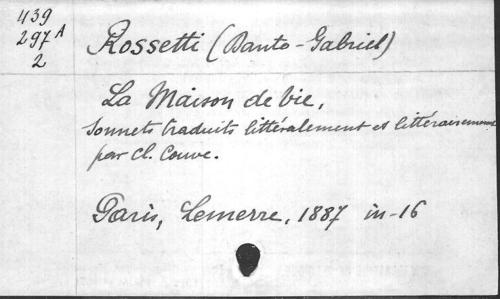 439
297 A
2
Rossetti (Dante-Gabriel)
La Maison de vie,
Sonnets traduits littéralement et littérairement
par Cl. Couve.
Paris, Lemerre, 1887 in-16